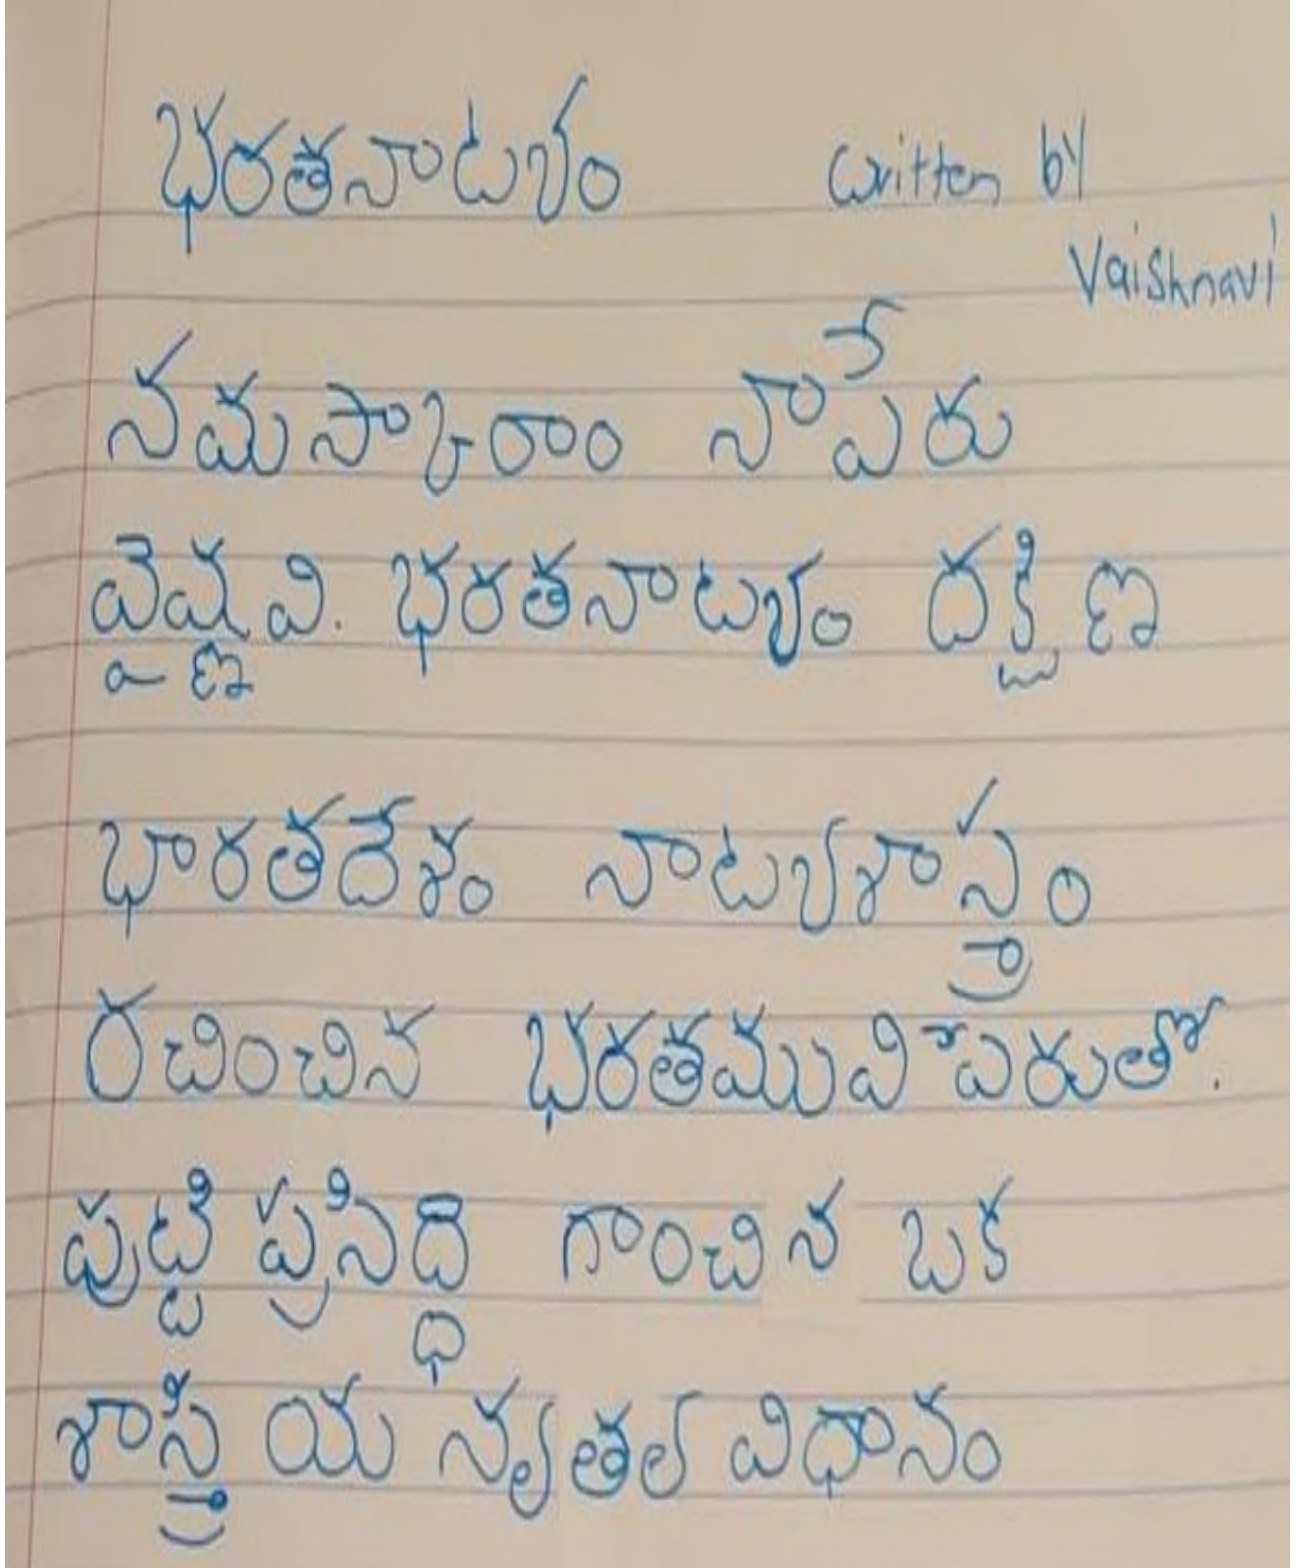 భరతనాట్యం written by
Vaishnavi
నమస్కారాం నాపేరు
వైష్ణవి. భరతనాట్యం దక్షిణ
భారతదేశం నాట్యశాస్త్రం
రచించిన భరతమువి పేరుతో.
పుట్టి ప్రసిద్ధి గాంచిన ఒక
శాస్త్రీయ నృత్య విధానం